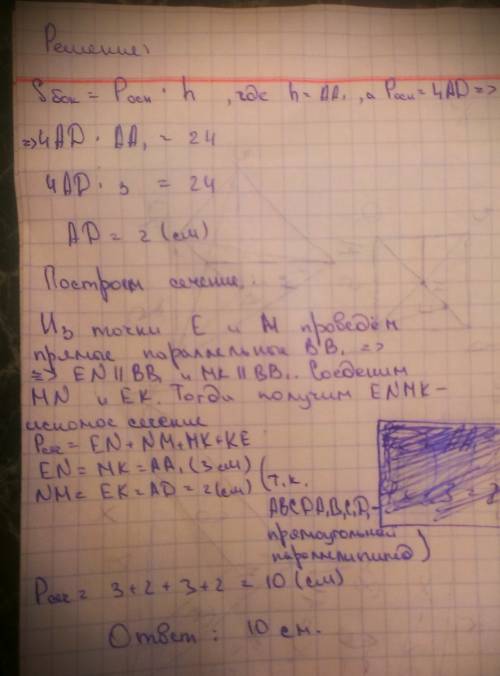 Решение:
Sбок = Pосн · h , где h = AA₁ , а Pосн = 4AD =>
=> 4AD · AA₁ = 24
4AD · 3 = 24
AD = 2 (см)
Построим сечение:
Из точки E и M проведём
прямые параллельные BB₁ =>
=> EN || BB₁ и MK || BB₁. Соединим
MN и EK. Тогда получим ENMK –
искомое сечение
Pсеч = EN + NM + MK + KE
EN = MK = AA₁ (3 см) (т.к.
NM = EK = AD = 2 (см)
ABCDA₁B₁C₁D₁ –
прямоугольный
параллелипипед)
Pсеч = 3 + 2 + 3 + 2 = 10 (см)
Ответ: 10 см.